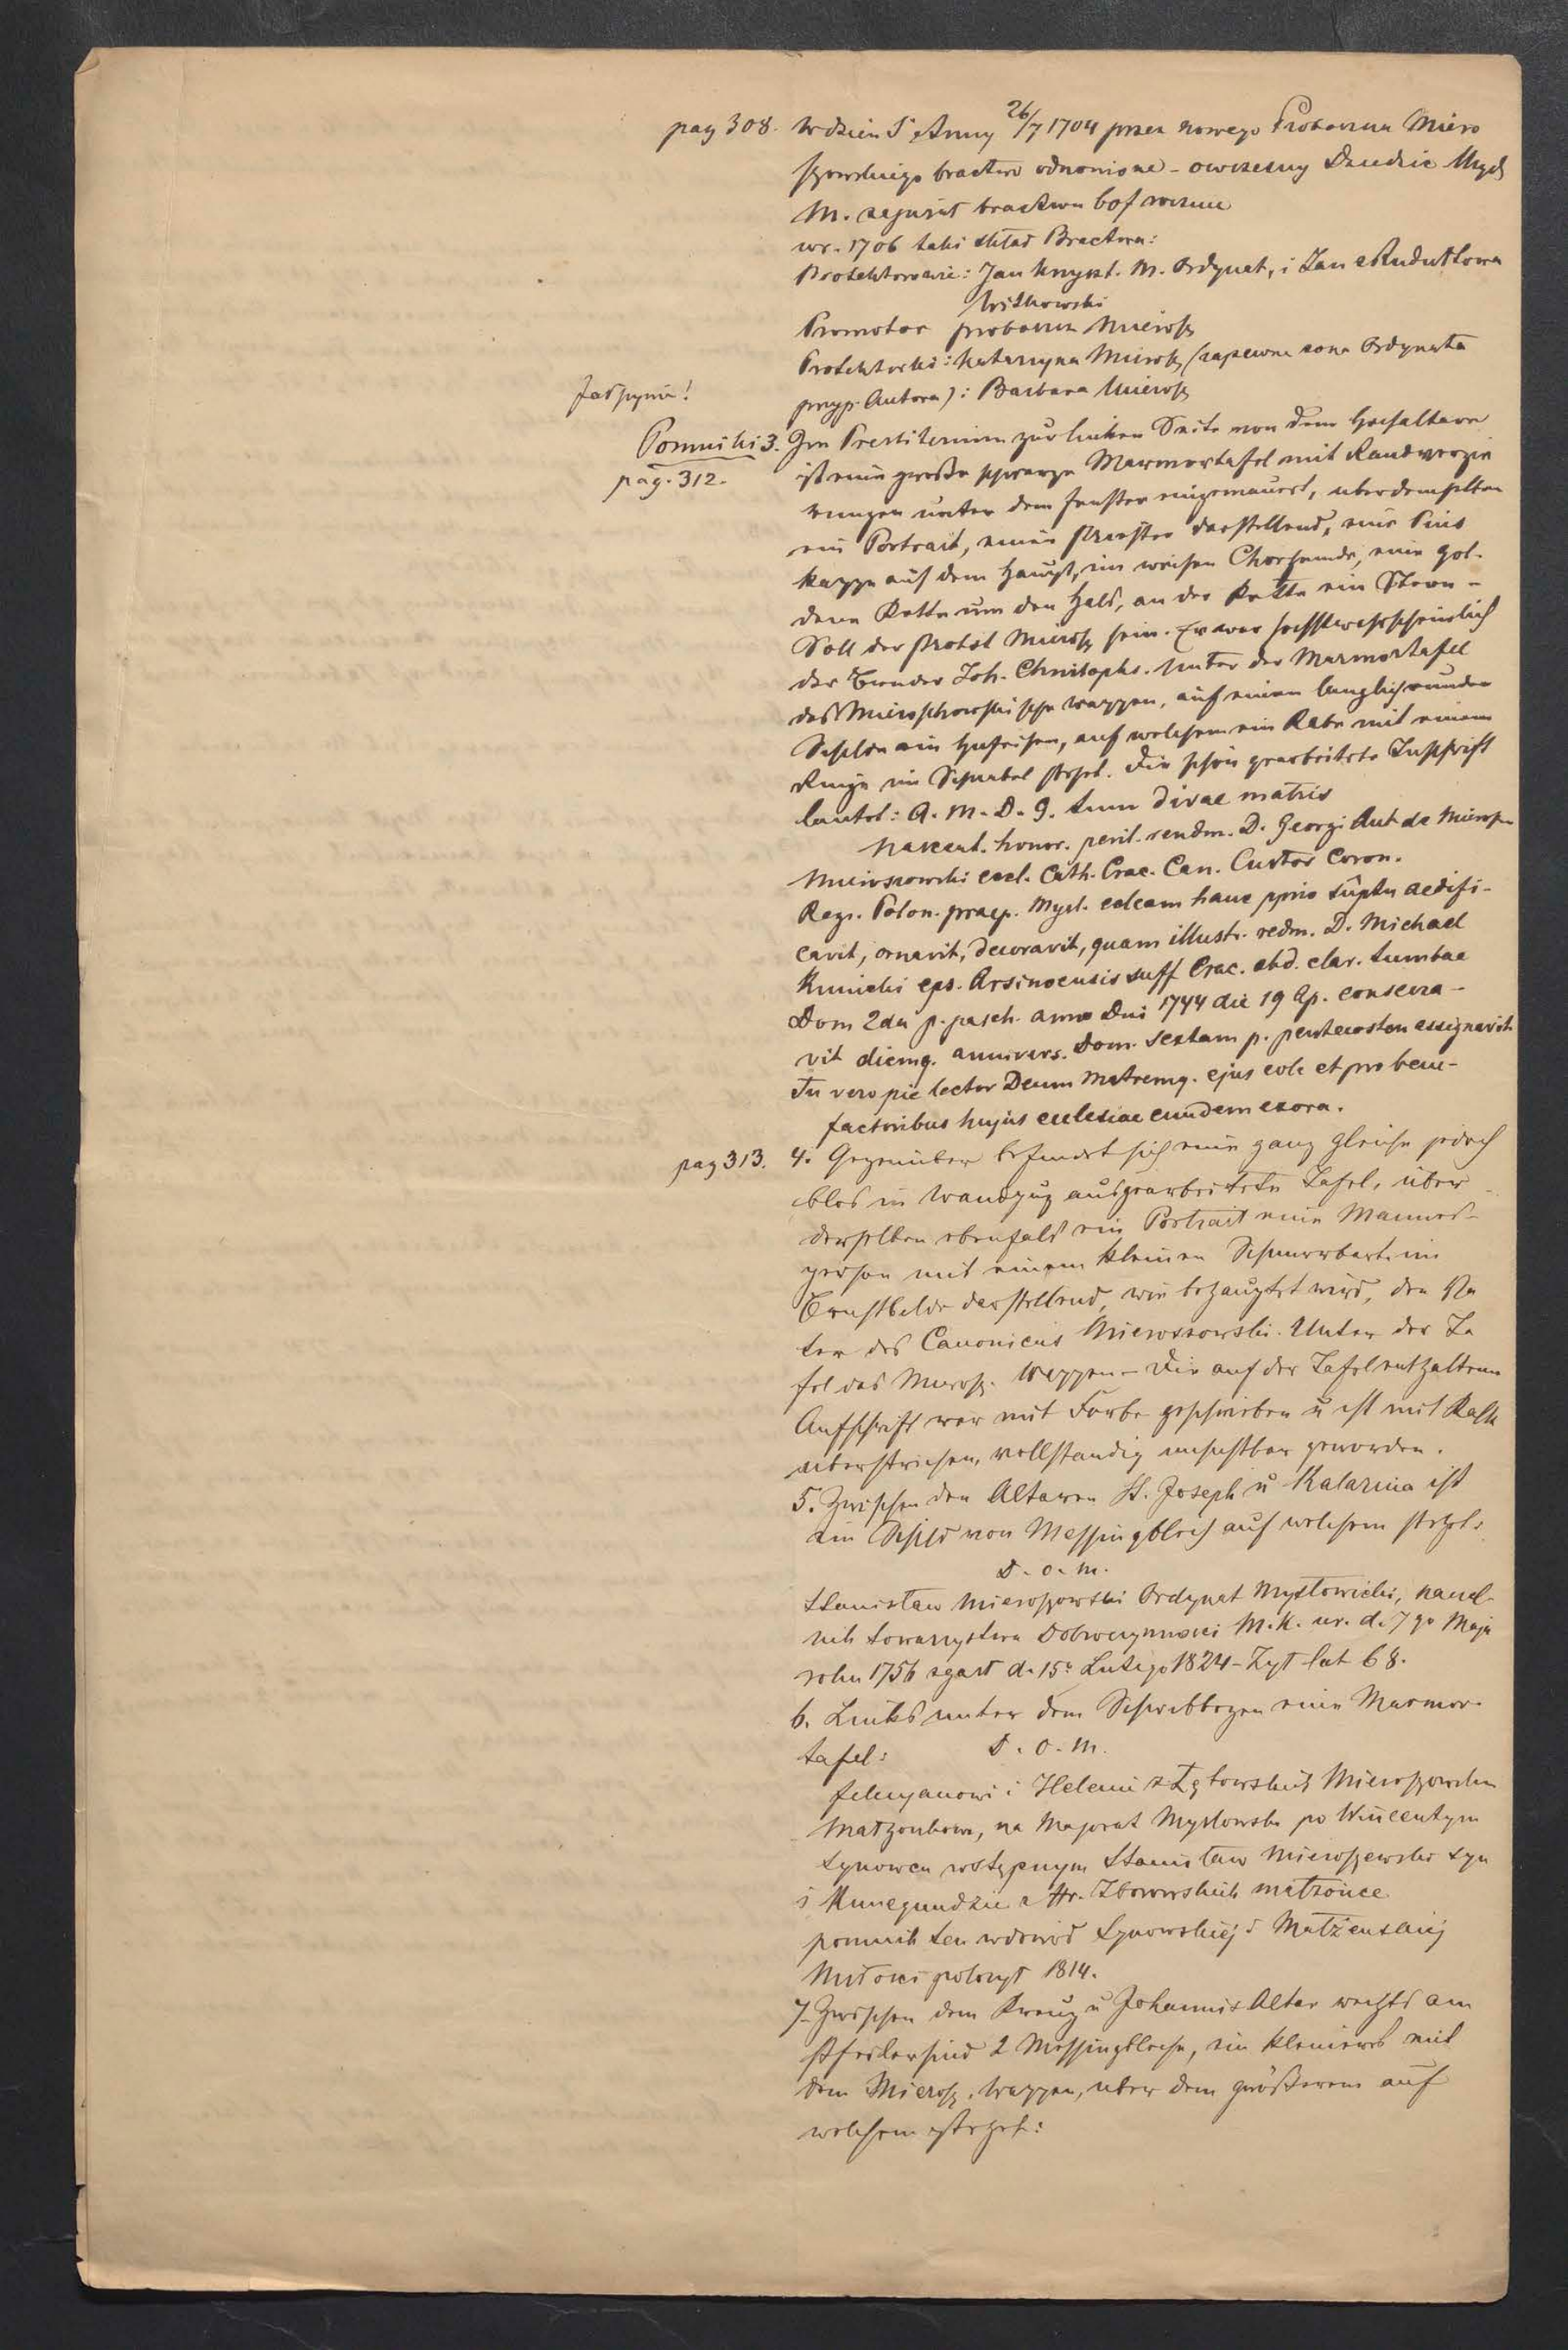 pag 308. W dzień S. Anny 26/7 1704 przez nowego Proboszcza Miero
szowskiego bractwo odnowione - owczesny Dziedzic Mysł
M. zapisał bractwu
w r. 1706 taki skład Bractwa:
Protektorowie: Jan Krzyszt. M. Ordynat, i Jan z Rudułtowa
Witkowski
Promotor proboszcz Mierosz
Protektorki: Katarzyna Mierosz (zapewne zona Ordynata
przyp. Autora): Barbara Mierosz
Pomniki 3. Im Presbiterium zur linken Seite von dem Hochaltare
pag. 312. ist eine große schwarze Marmortafel mit Randverzie
rungen unter dem Fenster eingemauert, uber demselben
ein Portrait, einen Priester darstellend, eine Pius
kappe auf dem Haupt, im weisen Chorhemde, eine gol-
dene Kette um den Hals, an der Kette ein Stern -
Soll der Probst Mierosz sein. Er war hochstwahrscheinlich
der Bruder Joh. Christophs. Unter der Marmortafel
das Mieroschowskische Wappen, auf einem langlichrunden
Schilde ein Hufeisen, auf welchem ein Rabe mit einem
Ringe im Schnabel steht. Die schön gearbeitete Inschrift
lautet: A. M. D. G. tum divae matris
Nascent. honor. peril. rendm. D. Georgi Ant de Mierosz
Mieroszowski eccl. Cath. Crac. Can. Custos Coron.
Regn. Polon. praep. Mysl. ecleam hanc pprio sũptu aedifi-
cavit, ornavit, decoravit, quam illustr. redm. D. Michael
Kunicki eps. Arsinoensis suff Crac. abd. clar. tumbae
Dom 2da p. pasch. anno Dni 1744 die 19 Ap. consecra-
vit diemq. annivers. Dom. sextam p. pentecosten assignavit
Tu vero pie lector Deum Matremq. ejus cole et pro bene-
factoribus hujus ecclesiae eundem exora.
pag 313. 4. Gegenüber befindet sich eine ganz gleiche jedoch
blos in Wandputz ausgearbeitete Tafel, über
derselben ebenfals ein Portrait eine Manns-
person mit einem kleinen Schnurrbart im
Brustbilde darstellend, wie behauptet wird, den Va
ter des Canonicus Mieroszowski. Unter der Ta
fel das Mierosz. Wappen - Die auf der Tafel enthaltene
Aufschrift war mit Farbe geschrieben u ist mit Kalk
uberstrichen, vollstandig unsichtbar geworden.
5. Zwischen den Altaren St. Joseph u Katarina ist
ein Schild von Messingblech auf welchem steht:
D. O. M.
Stanisław Mieroszowski Ordynat Mysłowicki, naczel-
nik towarzystwa Dobroczynnosci M. K. ur. d. 7go Maja
roku 1756 zgasł d. 15o Lutego 1824 - Żył lat 68.
6. Links unter dem Schwibbogen eine Marmor-
tafel: D. O. M.
Felicyanowi i Helenie z Łętowskich Mieroszowskim
Małzonkom, na Majorat Mysłowski po Wincentym
Synowcu wstępnym Stanisław Mieroszewski syn
i Kunegundzie z Hr. Zborowskich małzonce
pomnik ten w dowód Synowskiej i Małżenskiej
Miłosci położył 1814.
7. Zwischen dem Kreuz u Johannis Altar rechts am
Pfeiler sind 2 Messingbleche, ein kleineres mit
dem Mierosz. Wappen, uber dem größeren auf
welchem steht: